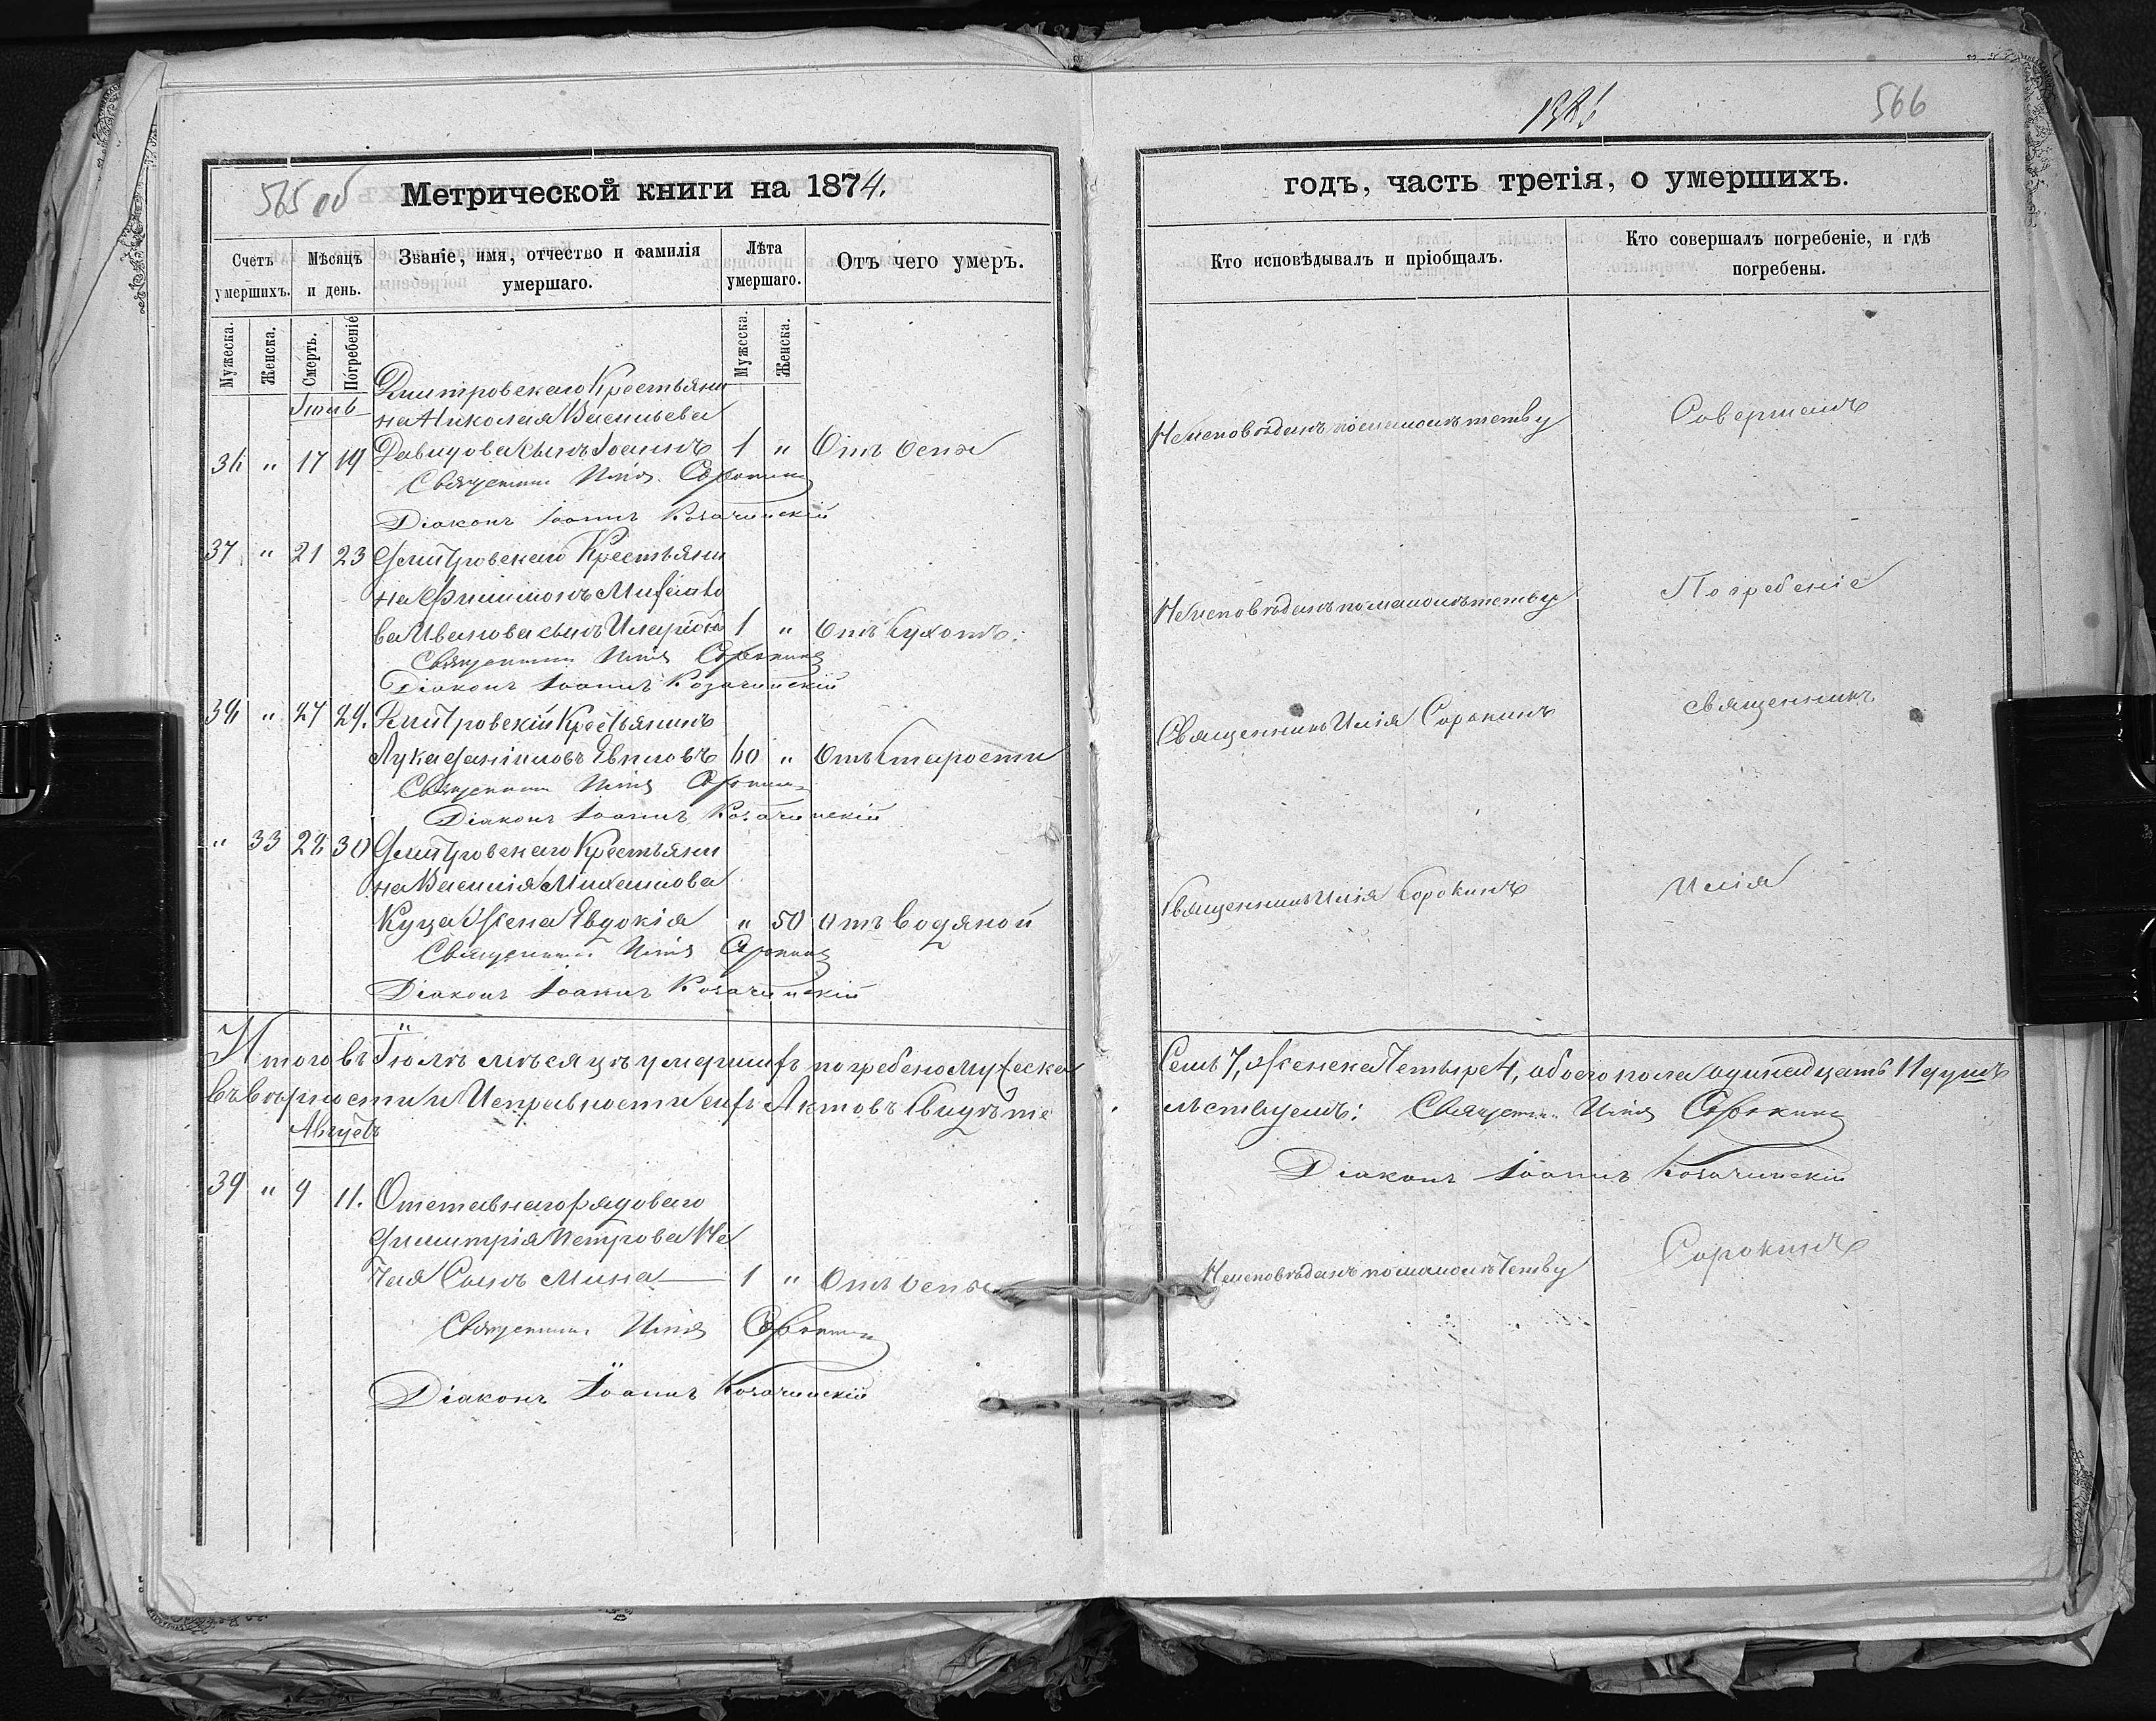 566
565 об
Метрической книги на 1874.
годъ, часть третія, о умершихъ.
Счетъ умершихъ.
Мѣсяцъ и день.
Званіе, имя, отчество и фамилія умершаго.
Лѣта умершаго.
Отъ чего умеръ.
Кто исповѣдывалъ и пріобщалъ.
Кто совершалъ погребеніе, и гдѣ погребены.
Мужеска.
Женска.
Смерть.
Погребеніе
Мужеска.
Женска.
Дмитровскаго Крестьяни
на Николая Васильева
36 " 17 19 Давидова сынъ Іоаннъ 1 " Отъ оспы
Неисповѣданъ по малолѣтству
Совершалъ
Священникъ Илія Сорокинъ
Діаконъ Іоаннъ Козачинскій
37 " 21 23 Дмитровскаго Крестьяни
на Филимона
ва Иванова сынъ Иларіонъ 1 " отъ сухотъ.
Неисповѣданъ по малолѣтству
Погребеніе
Священникъ Илія Сорокинъ
Діаконъ Іоаннъ Козачинскій
38 " 27 29. Дмитровскій Крестьянинъ
Лука Даніиловъ 60 " Отъ старости
Священникъ Илія Сорокинъ
священникъ
Священникъ Илія Сорокинъ
Діаконъ Іоаннъ Козачинскій
" 33 28 30 Дмитровскаго Крестьяни
на Василія Михаилова
Куца Жена Евдокія " 50 отъ водяной
Священникъ Илія Сорокинъ
Илія
Священникъ Илія Сорокинъ
Діаконъ Іоаннъ Козачинскій
Итого въ Іюлѣ мѣсяцѣ умершихъ погребено Мужеска
Семь 7, Женска Четыре 4, обоего пола одинадцать 11 душъ
въ вѣрности и Исправности сихъ Актовъ свидѣте
льствуемъ: Священникъ Илія Сорокинъ
Діаконъ Іоаннъ Козачинскій
Августъ
39 " 9 11. Отставнаго рядоваго
Димитрія Петрова Не
чая Сынъ Мина 1 " Отъ оспы
Неисповѣданъ по малолѣтству
Сорокинъ
Священникъ Илія Сорокинъ
Діаконъ Іоаннъ Козачинскій